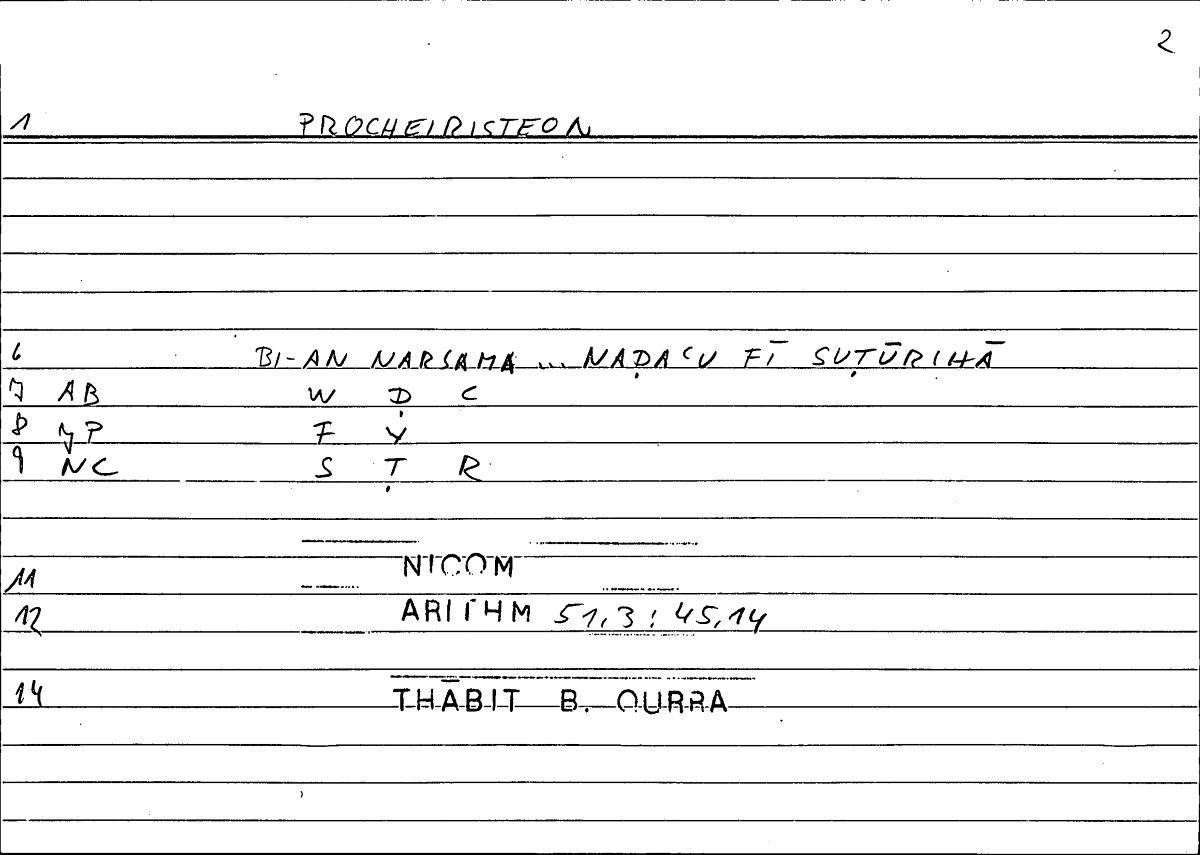 2
1 PROCHEIRISTEON
6 BI-AN NARSAMA ... NAḌAʿU FĪ SUṬŪRIHĀ
7 AB W Ḍ C
8 yP F Y
9 NC S Ṭ R
NICOM
11
12 ARITHM 51,3 : 45,14
14 THĀBIT B. QURRA